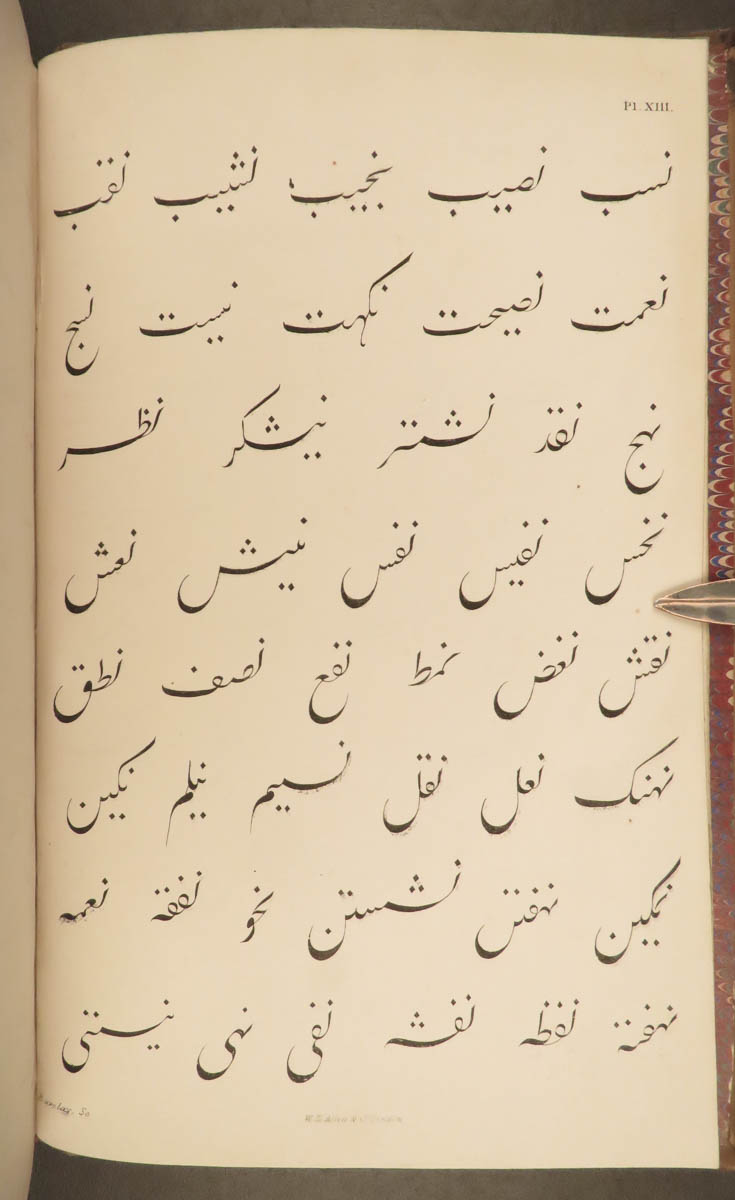 Pl. XIII.
نسب نصیب نجیب نشیب نقب
نعمت نصیحت نکهت نیست نسج
نهج نقد نشتر نیشکر نظر
نحس نفیس نفس نیش نعش
نقش نغض نمط نفع نصف نطق
نهنک نعل نقل نسیم نیلم نکین
نمکین نهفتن نشستن نحو نفقه نغمه
نهفته نقطه نقشه نفی نهی نیستی